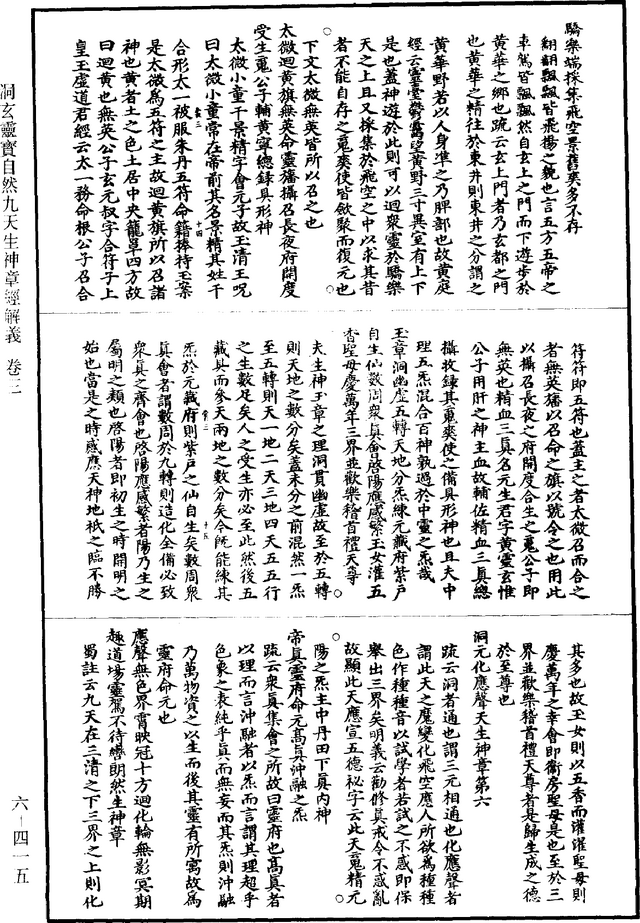 驕樂端採集飛空景舊爽多不存
翩翩飄飄皆飛揚之貌也言五方五帝之
車駕皆飄飄然自玄上之門而下遊步於
黃華之鄉也疏云玄上門者乃玄都之門
也黃華之精往於東井則東井之分謂之
黃華野若以人身準之乃脾部也故黃庭
經云靈臺鬱藹望黃野三寸異室有上下
是也蓋神遊於此則可以迴眾靈於驕樂
天之上且又採集於飛空之中以求其昔
者不能自存之鬼爽使皆斂聚而復元也
下文太微無英皆所以召之也
太微迴黃旗無英命靈旛攝召長夜府開度
受生䰟公子輔黃寧總錄具形神
太微小童千景精字會元子故玉清王呪
曰太微小童常在帝前其名景精其姓千
合形太一被服朱丹五符命籍捧持玉案
是太微為五符之主故迴黃旗所以召諸
神也黃者土之色土居中央籠罩四方故
曰迴黃也無英公子玄元叔字合符子上
皇玉虛道君經云太一務命根公子召合
洞玄靈寶自然九天生神章經解義 卷三
符符即五符也蓋主之者太微召而合之
者無英旛以召命之旗以號令之也用此
以攝召長夜之府開度合生之䰟公子即
無英也精血三真名元生君字黃靈玄惟
公子用肝之神主血故輔佐精血三真總
攝收錄其䰟爽使之備具形神也且夫中
理五炁混合百神孰過於中靈之炁哉
玉章洞幽虛五轉天地分炁練元藏府紫戶
自生仙數周眾真會啓陽應感繁玉女灌五
香聖母慶萬年三界並歡樂稽首禮天尊
夫生神玉章之理洞貫幽虛故至於五轉
則天地之數分矣蓋未分之前混然一炁
至五轉則天一地二天三地四天五五行
之生數足矣人之受生亦必至此然後五
藏具而參天兩地之數分矣今既能練其
炁於元藏府則紫戶之仙自生矣數周眾
真會者謂數周於九轉則造化全備必致
眾真之齊會也啓陽應感繁者陽乃生之
屬明之類也啓陽者即初生之時開明之
始也當是之時感應天神地祇之臨不勝
其多也故玉女則以五香而灌灌聖母則
慶萬年之幸會即衛房聖母是也至於三
界並歡樂稽首禮天尊者是歸生成之德
於至尊也
洞元化應聲天生神章第六
疏云洞者通也謂三元相通也化應聲者
謂此天之魔變化飛空應人所欲為種種
色作種種音以試學者若試之不惑即保
舉出三界矣明義云勸修真戒令不惑亂
故顯此天應宣五德祕字云此天䰟精元
陽之炁主中丹田下真內神
帝真靈府命元高真沖融之炁
疏云眾真集會之所故曰靈府也高真者
以理而言沖融者以炁而言謂其理超乎
色象之表純乎真而無妄而其炁則沖融
乃萬物資之以生而後其靈有所寓故為
靈府命元也
應聲無色界霄映冠十方迴化輪無影冥期
趣道場靈駕不待轡朗然生神章
蜀註云九天在三清之下三界之上則化
六-四一五